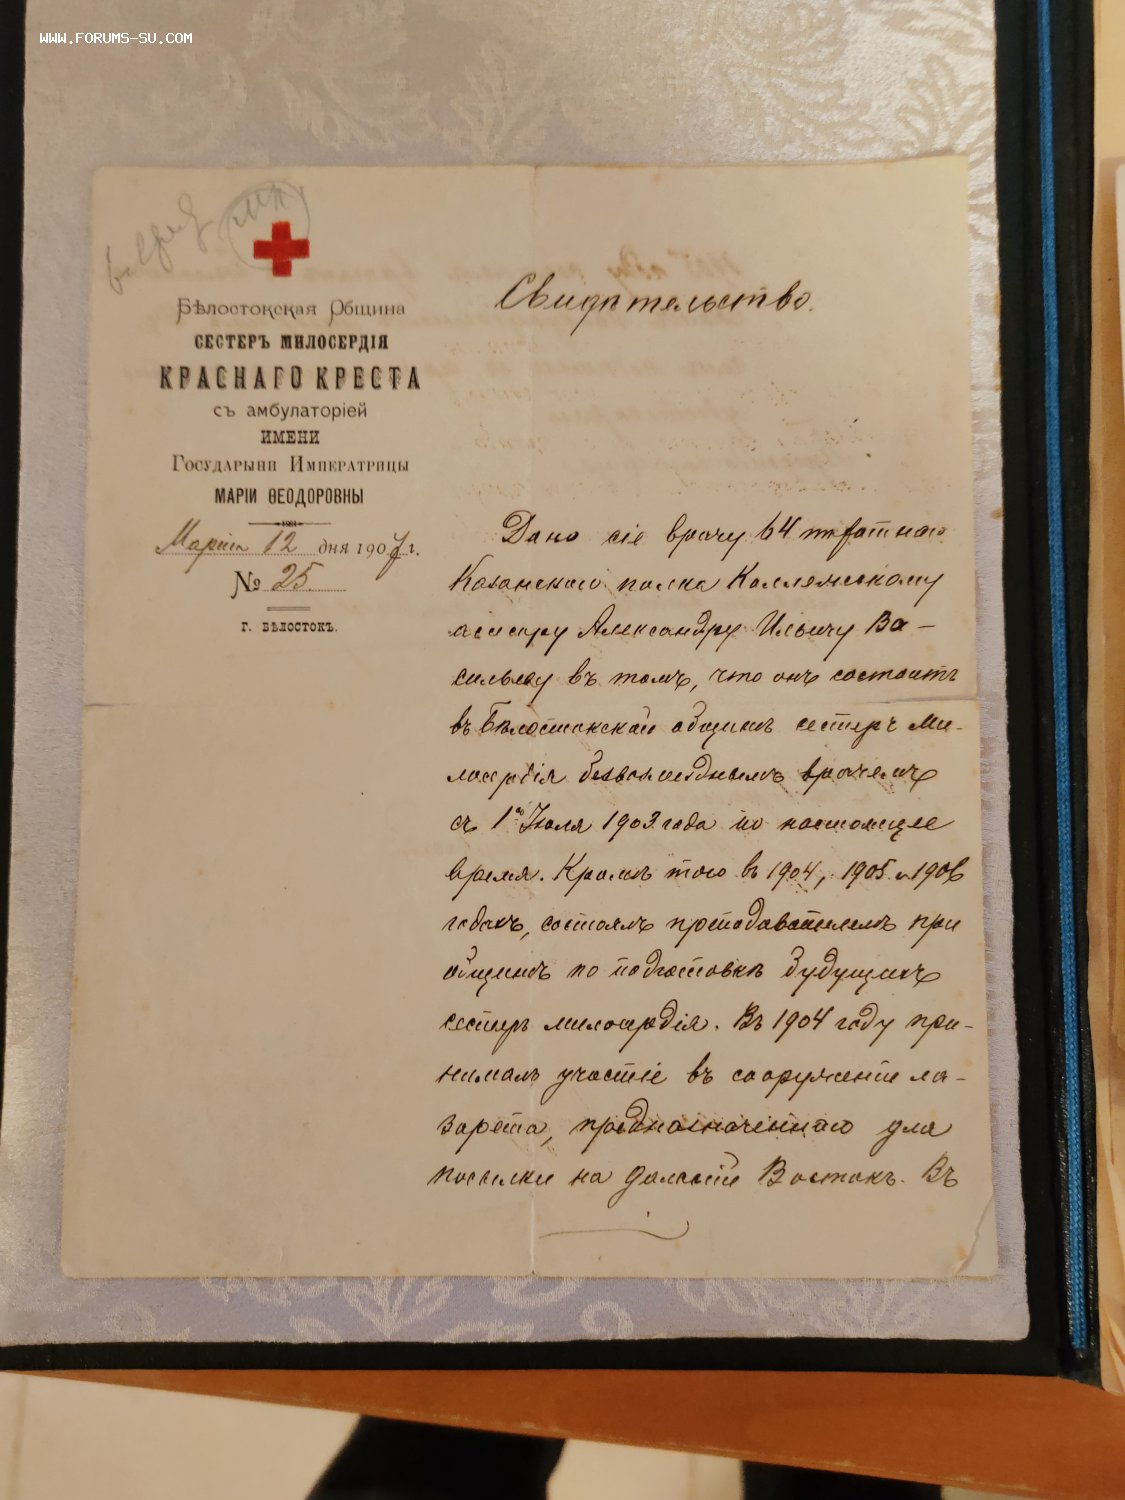 WWW.FORUMS-SU.COM
Бѣлостокская Община
СЕСТЕРЪ МИЛОСЕРДІЯ
КРАСНАГО КРЕСТА
съ амбулаторіей
ИМЕНИ
ГОСУДАРЫНИ ИМПЕРАТРИЦЫ
МАРІИ ѲЕОДОРОВНЫ
Марта 12 дня 1907 г.
№ 25
Г. БѢЛОСТОКЪ.
Свидѣтельство.
Дано сіе врачу 64 пѣхотнаго
Казанскаго полка Коллежскому
асесору Александру Ильичу Ва-
сильеву въ томъ, что онъ состоитъ
въ Бѣлостокской общинѣ сестеръ Ми-
лосердія безвозмезднымъ врачемъ
съ 1го Іюля 1903 года по настоящее
время. Кромѣ того въ 1904, 1905 и 1906
годахъ, состоялъ преподавателемъ при
общинѣ по подготовкѣ будущихъ
сестеръ милосердія. Въ 1904 году при-
нималъ участіе въ сооруженіи ла-
зарета, предназначеннаго для
посылки на дальній Востокъ. Въ